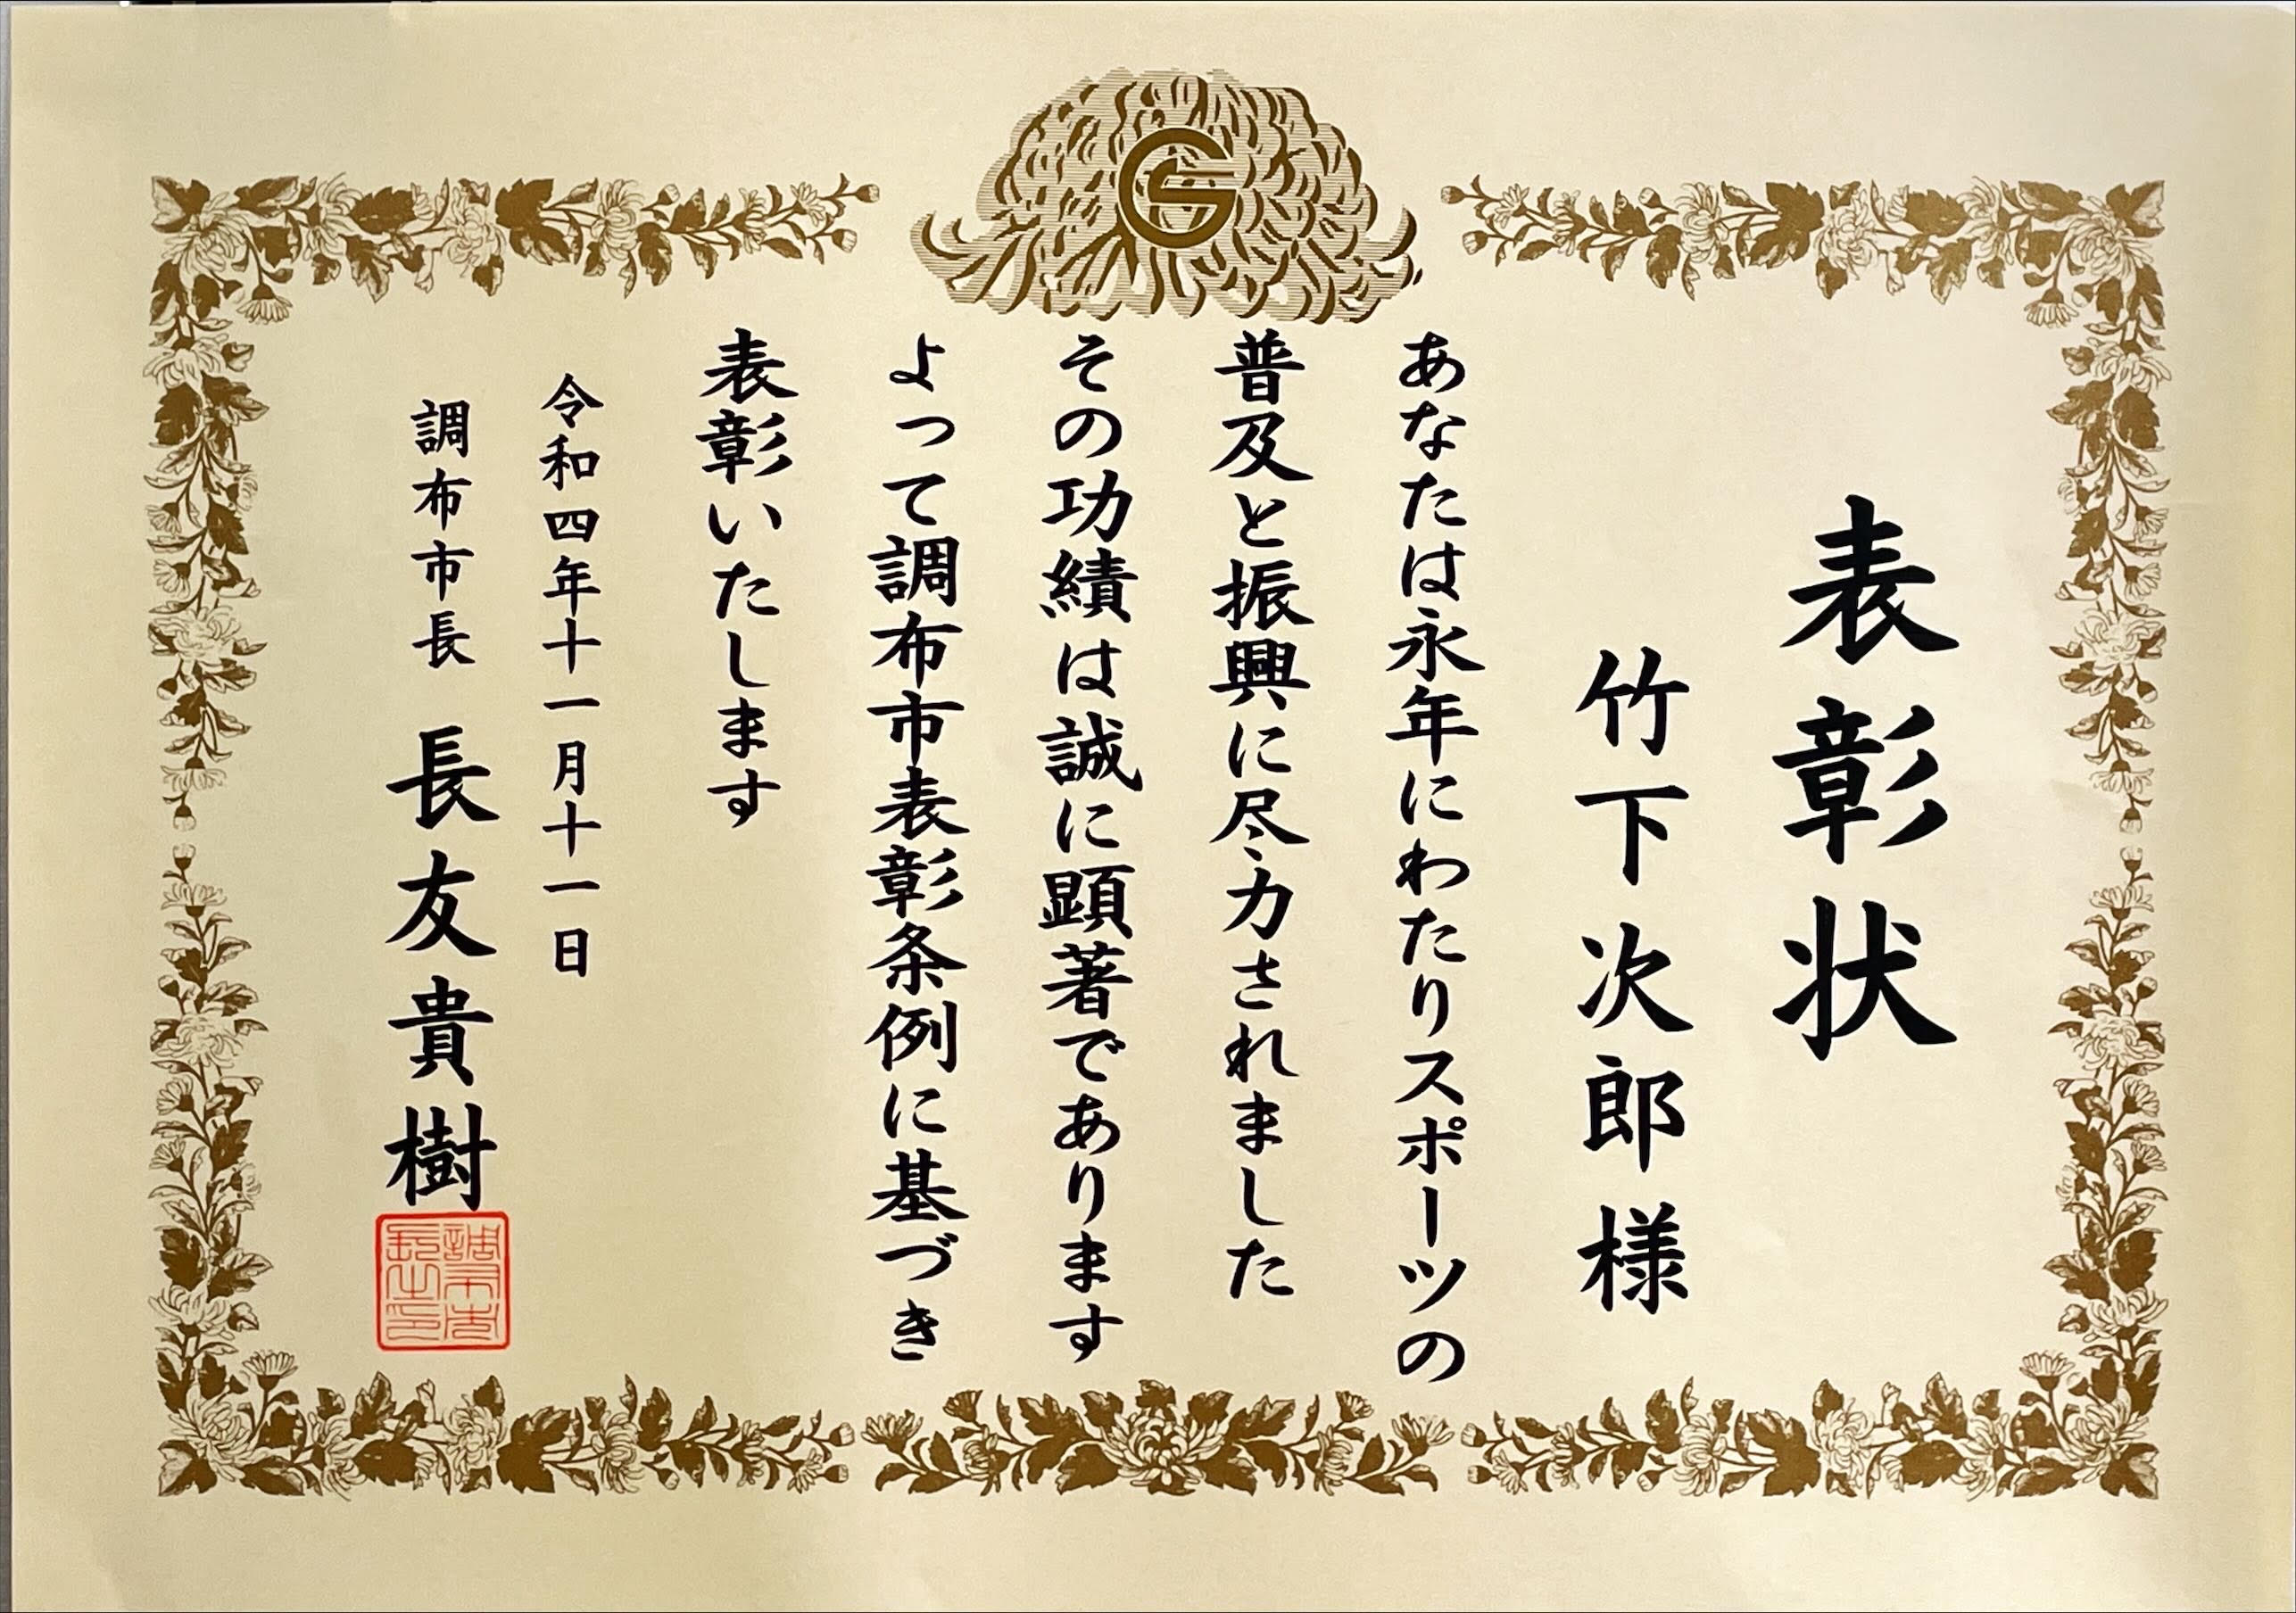 表彰状
竹下次郎様
あなたは永年にわたりスポーツの
普及と振興に尽力されました
その功績は誠に顕著であります
よって調布市表彰条例に基づき
表彰いたします
令和四年十一月十一日
調布市長 長友貴樹
調布市
長之印